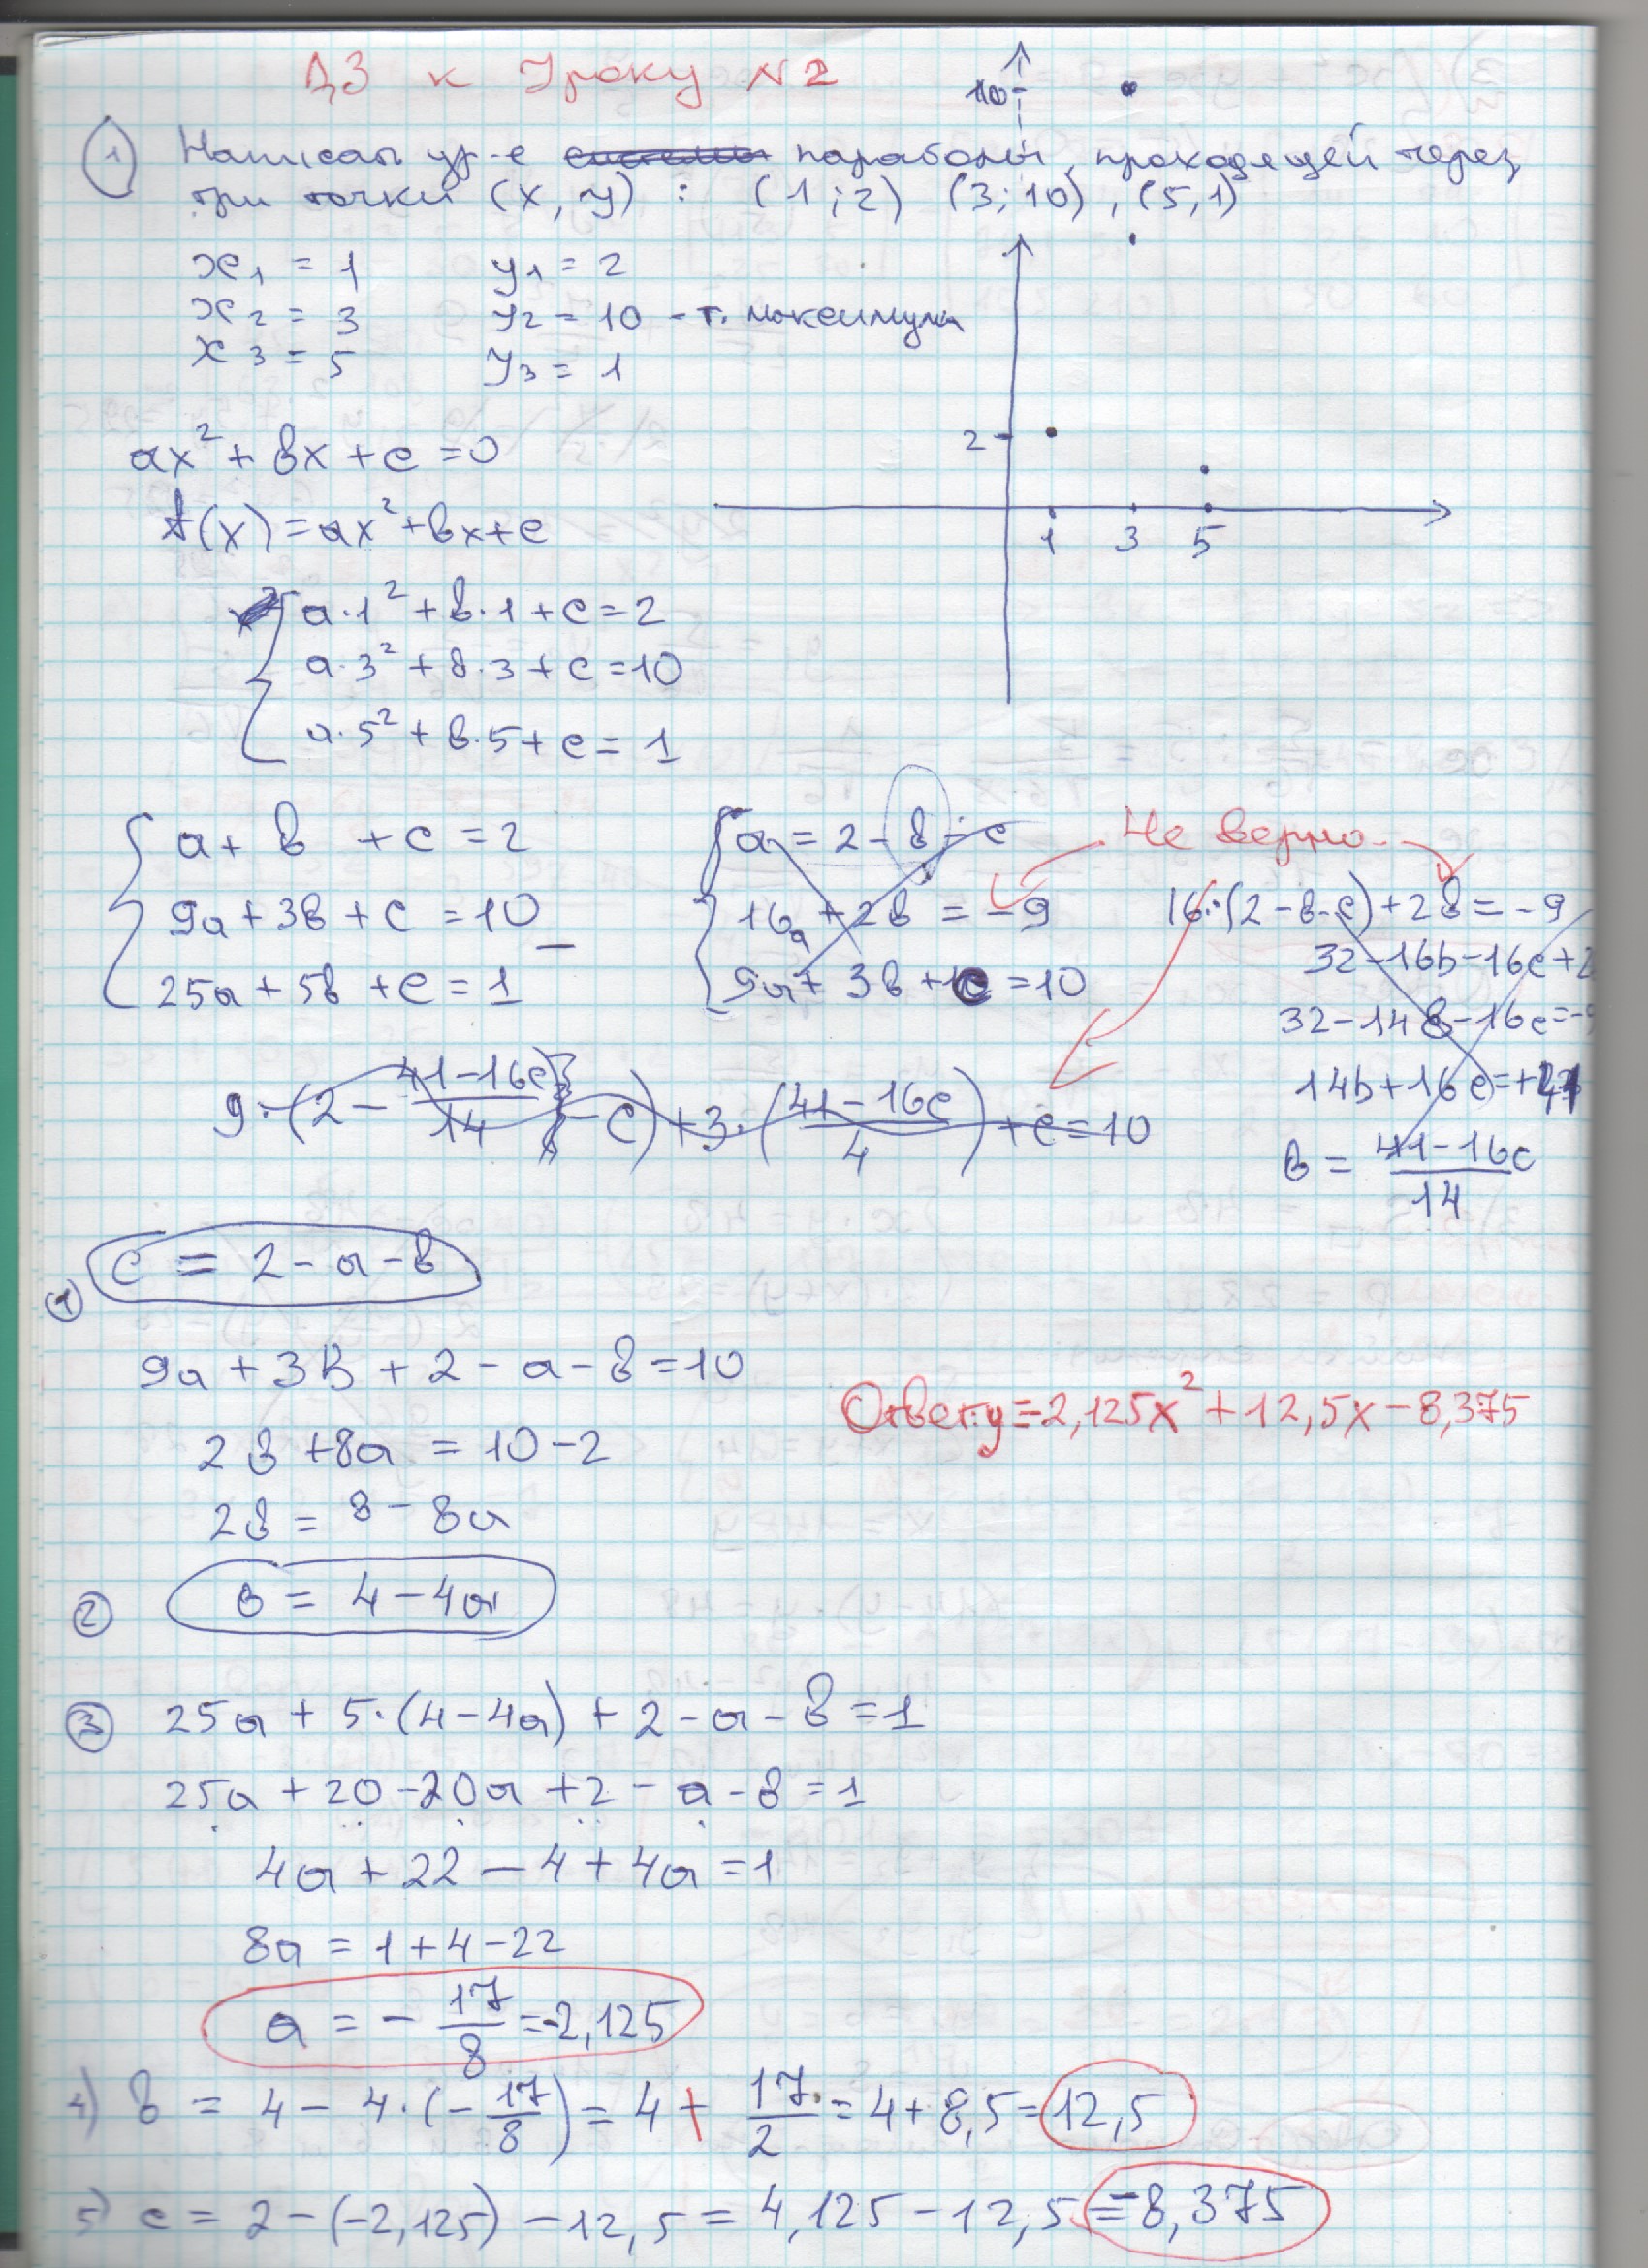 ДЗ к Уроку N 2
10
① Написать ур-е системы параболы, проходящей через
три точки (x, y) : (1; 2) (3; 10), (5, 1)
x₁ = 1 y₁ = 2
x₂ = 3 y₂ = 10 - т. максимума
x₃ = 5 y₃ = 1
2
1 3 5
ax² + bx + c = 0
f(x) = ax² + bx + c
a·1² + b·1 + c = 2
a·3² + b·3 + c = 10
a·5² + b·5 + c = 1
a + b + c = 2
9a + 3b + c = 10
25a + 5b + c = 1
a = 2 - b - c
16a + 2b = -9
9a + 3b + c = 10
Не верно.
16·(2 - b - c) + 2b = -9
32 - 16b - 16c + 2
32 - 14b - 16c = -9
14b + 16c = +41
b = (41 - 16c)/14
9·(2 - (41 - 16c)/14 - c) + 3·((41 - 16c)/4) + c = 10
① c = 2 - a - b
9a + 3b + 2 - a - b = 10
2b + 8a = 10 - 2
2b = 8 - 8a
② b = 4 - 4a
Ответ: y = -2,125x² + 12,5x - 8,375
③ 25a + 5·(4 - 4a) + 2 - a - b = 1
25a + 20 - 20a + 2 - a - b = 1
4a + 22 - 4 + 4a = 1
8a = 1 + 4 - 22
a = - 17/8 = -2,125
4) b = 4 - 4·(- 17/8) = 4 + 17/2 = 4 + 8,5 = 12,5
5) c = 2 - (-2,125) - 12,5 = 4,125 - 12,5 = -8,375